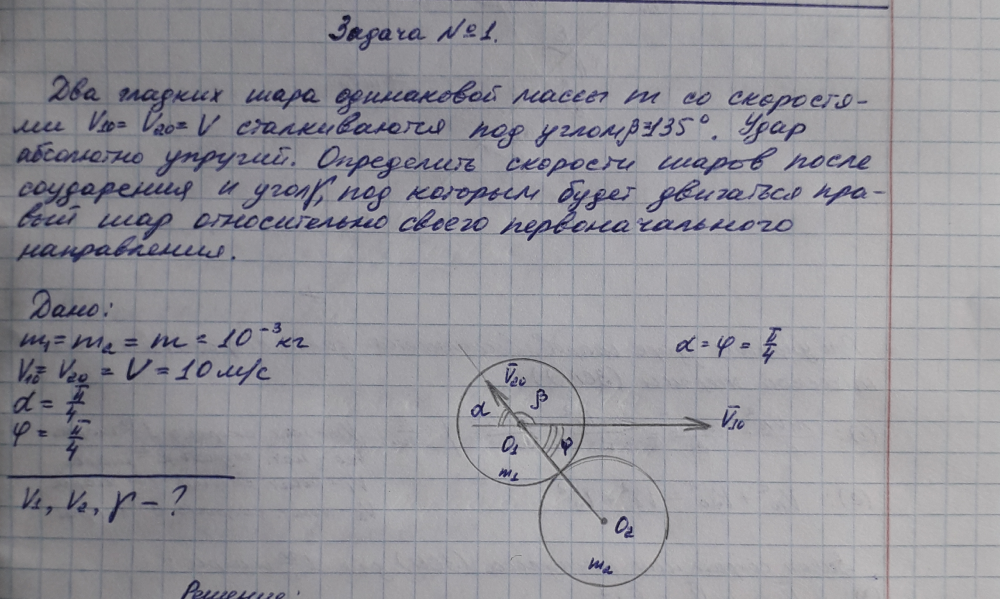 Задача №1.
Два гладких шара одинаковой массы m со скоростя-
ми V₁₀= V₂₀= V сталкиваются под углом β=135°. Удар
абсолютно упругий. Определить скорости шаров после
соударения и угол γ, под которым будет двигаться пра-
вый шар относительно своего первоначального
направления.
Дано:
m₁= m₂ = m = 10⁻³ кг
V₁₀= V₂₀ = V = 10 м/с
α = π/4
φ = π/4
V₁, V₂, γ – ?
α = φ = π/4
V̄₂₀
α β
V̄₁₀
O₁ φ
m₁
O₂
m₂
Решение: